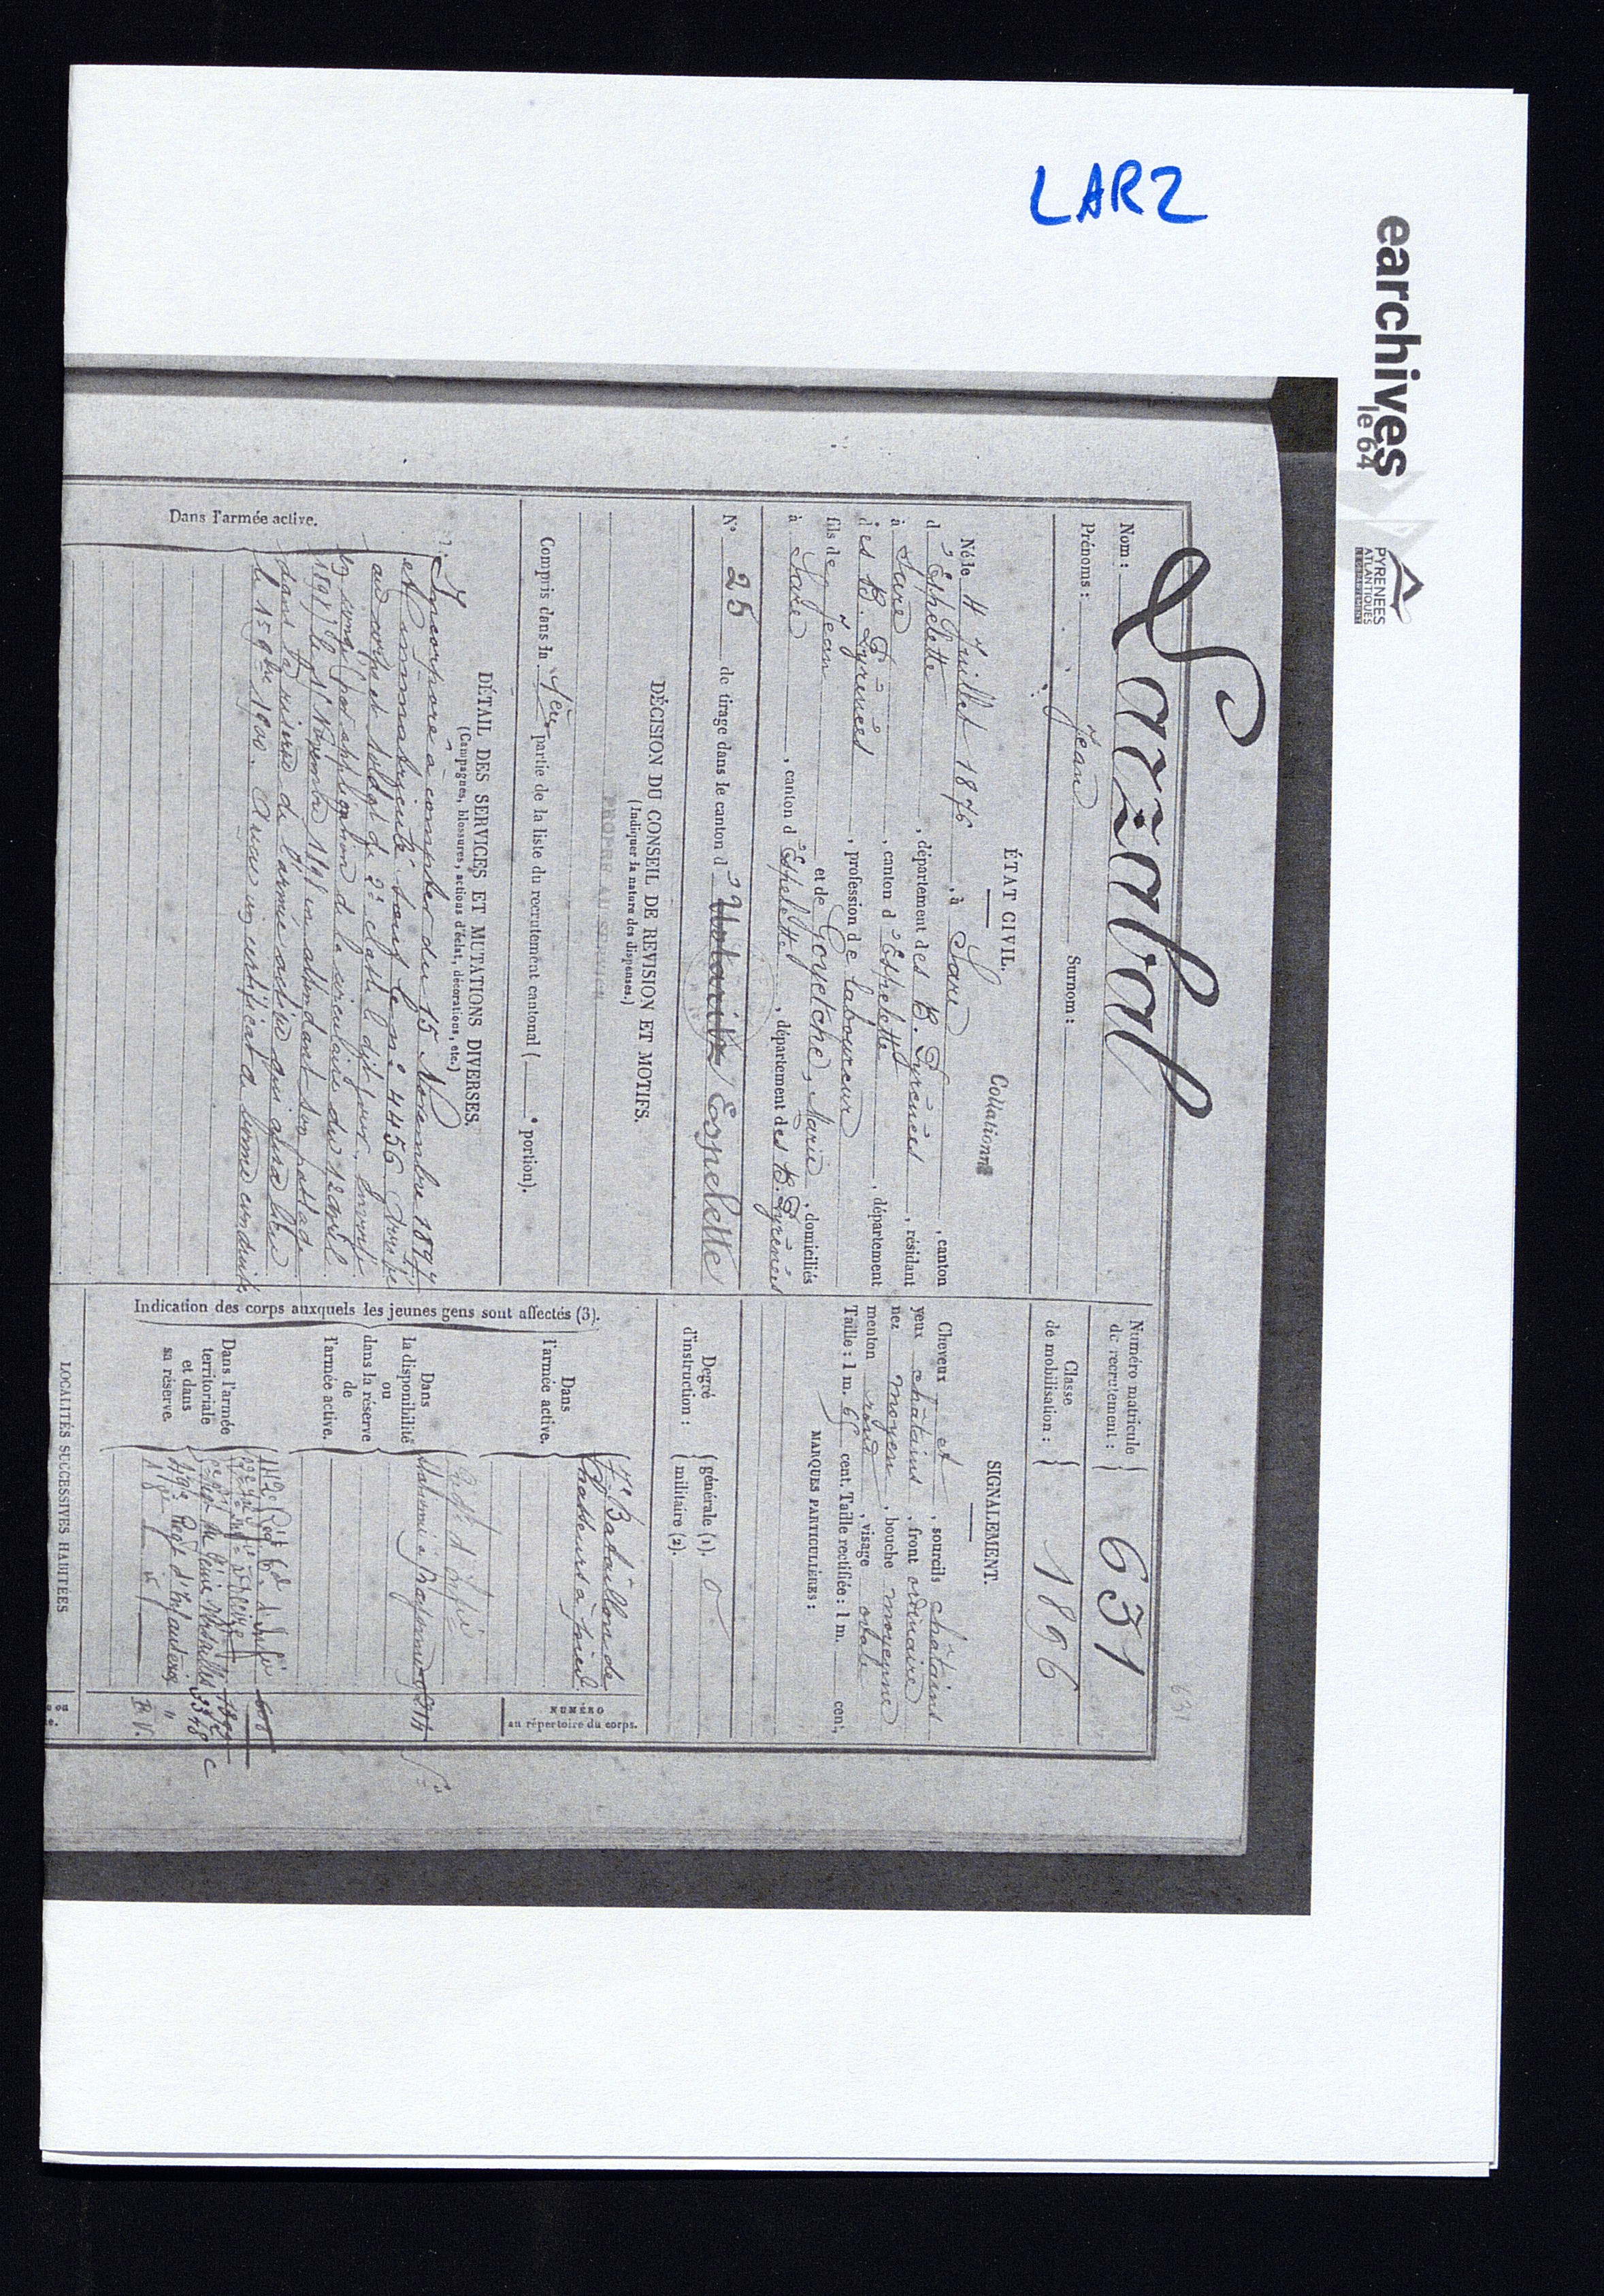 LARZ
earchives
le 64
PYRENEES
ATLANTIQUES
LE DEPARTEMENT
Nom : Larzabal
Prénoms : Jean Surnom :
Numéro matricule
de recrutement : 631
Classe
de mobilisation : 1896
631
ÉTAT CIVIL.
Collationné
Né le 4 Juillet 1876, à Sare, canton
d'Espelette, département des B. Pyrénées, résidant
à Sare, canton d'Espelette, département
des B. Pyrénées, profession de laboureur
fils de Jean et de Goyetche, Marie, domiciliés
à Sare, canton d'Espelette, département des B. Pyrénées
N° 25 de tirage dans le canton d' Espelette
SIGNALEMENT.
Cheveux et, sourcils châtains
yeux châtains, front ordinaire
nez moyen, bouche moyenne
menton rond, visage ovale
Taille : 1 m. 65 cent. Taille rectifiée : 1 m. cent.
MARQUES PARTICULIÈRES :
DÉCISION DU CONSEIL DE REVISION ET MOTIFS.
(Indiquer la nature des dispenses.)
PROPRE AU SERVICE
Compris dans la 1ère partie de la liste du recrutement cantonal ( ° portion).
Degré
d'instruction :
générale (1). 0
militaire (2).
DÉTAIL DES SERVICES ET MUTATIONS DIVERSES.
(Campagnes, blessures, actions d'éclat, décorations, etc.)
Dans l'armée active.
Incorporé à compter du 15 Novembre 1897
et immatriculé sous le n° 4456
au corps et soldat de 2e classe le dit jour.
en congé par application de la circulaire du
1898 en attendant son passage
dans la réserve de l'armée active qui aura lieu
le 15 9bre 1900. A un certificat de bonne conduite
Indication des corps auxquels les jeunes gens sont affectés (3).
NUMÉRO
au répertoire du corps.
Dans
l'armée active.
Bataillon de
Chasseurs à pied
Dans
la disponibilité
ou
dans la réserve
de
l'armée active.
Regt d'Infie
Dans l'armée
territoriale
et dans
sa réserve.
142e Regt d'Infie
du Génie Versailles 3348 C
Regt d'Infanterie "
R.V.
LOCALITÉS SUCCESSIVES HABITÉES